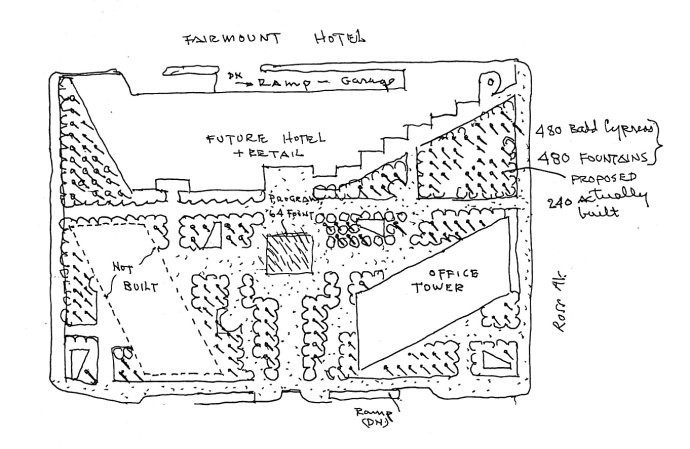 FAIRMOUNT HOTEL
DN
RAMP - Garage
FUTURE HOTEL
+ RETAIL
480 Bald Cypress
480 FOUNTAINS
PROPOSED
240 Actually
built
PROGRAM
64 FOINT
NOT
BUILT
OFFICE
TOWER
Ross Av.
Ramp
(DN)